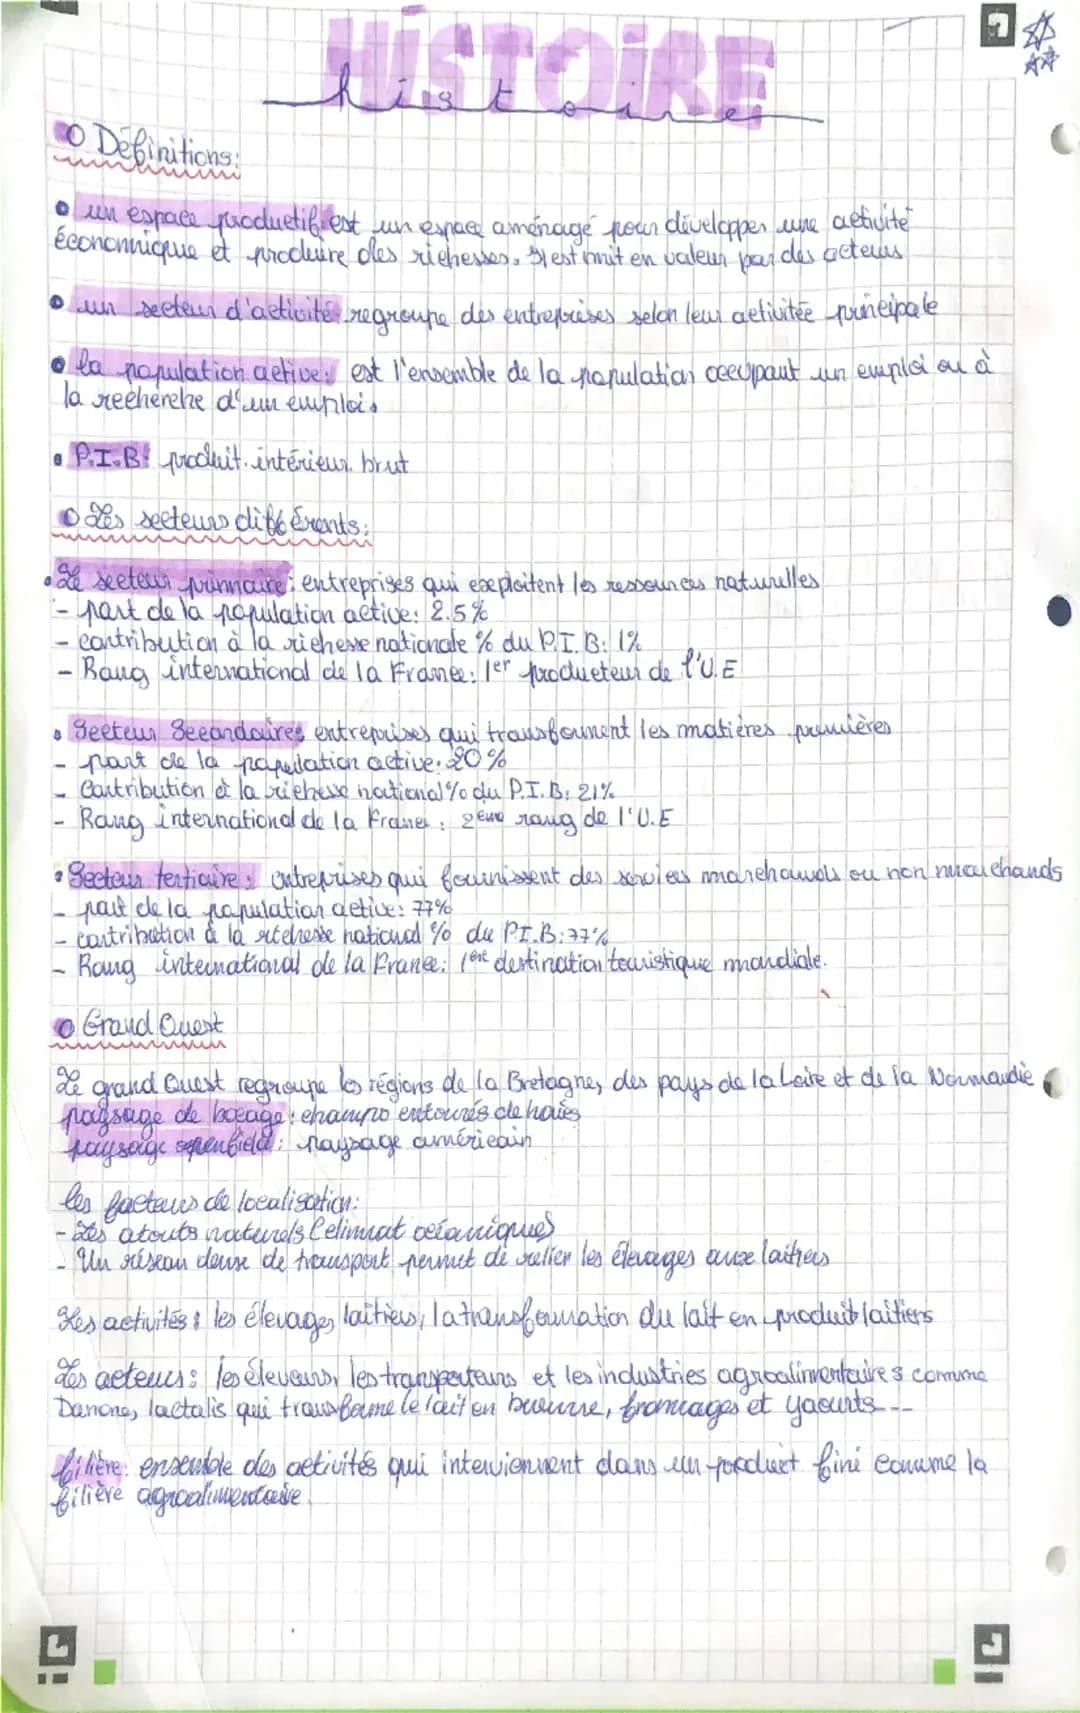 HISTOIRE
histoire
Définitions:
un espace productif: est un espace aménagé pour développer une activité
économique et produire des richesses. Il est mit en valeur par des acteurs
un secteur d'activité: regroupe des entreprises selon leur activitée principale
la population active: est l'ensemble de la population occupant un emploi ou à
la recherche d'un emploi.
P.I.B: produit intérieur brut
Les secteurs différents:
Le secteur primnaire: entreprises qui exeploitent les ressources naturelles
- part de la population active: 2.5%
- contribution à la richesse nationale % du P.I.B: 1%
- Rang international de la France: 1er producteur de l'U.E
Secteur Secondaires entreprises qui transforment les matières premières
- part de la population active: 20%
- Contribution à la richesse national % du P.I.B: 21%
- Rang international de la France : 2ème rang de l'U.E
Secteur tertiaire: entreprises qui fournissent des services marchands ou non marchands
- part de la population active: 77%
- contribution à la richesse national % du P.I.B: 77%
- Rang international de la France: 1ère destination touristique mondiale.
Grand Ouest
Le grand Ouest regroupe les régions de la Bretagne, des pays de la Loire et de la Normandie
paysage de bocage: champs entourés de haies
paysage openfield: paysage américain
les facteurs de localisation:
- Les atouts naturels (climat océaniques)
- Un réseau dense de transport permet de relier les élevages aux laitiers
Les activités: les élevages laitiers, la transformation du lait en produit laitiers
Les acteurs: les éleveurs, les transporteurs et les industries agroalimentaires comme
Danone, lactalis qui transforme le lait en beurre, fromages et yaourts...
filière: ensemble des activités qui interviennent dans un produit fini comme la
filière agroalimentaire.